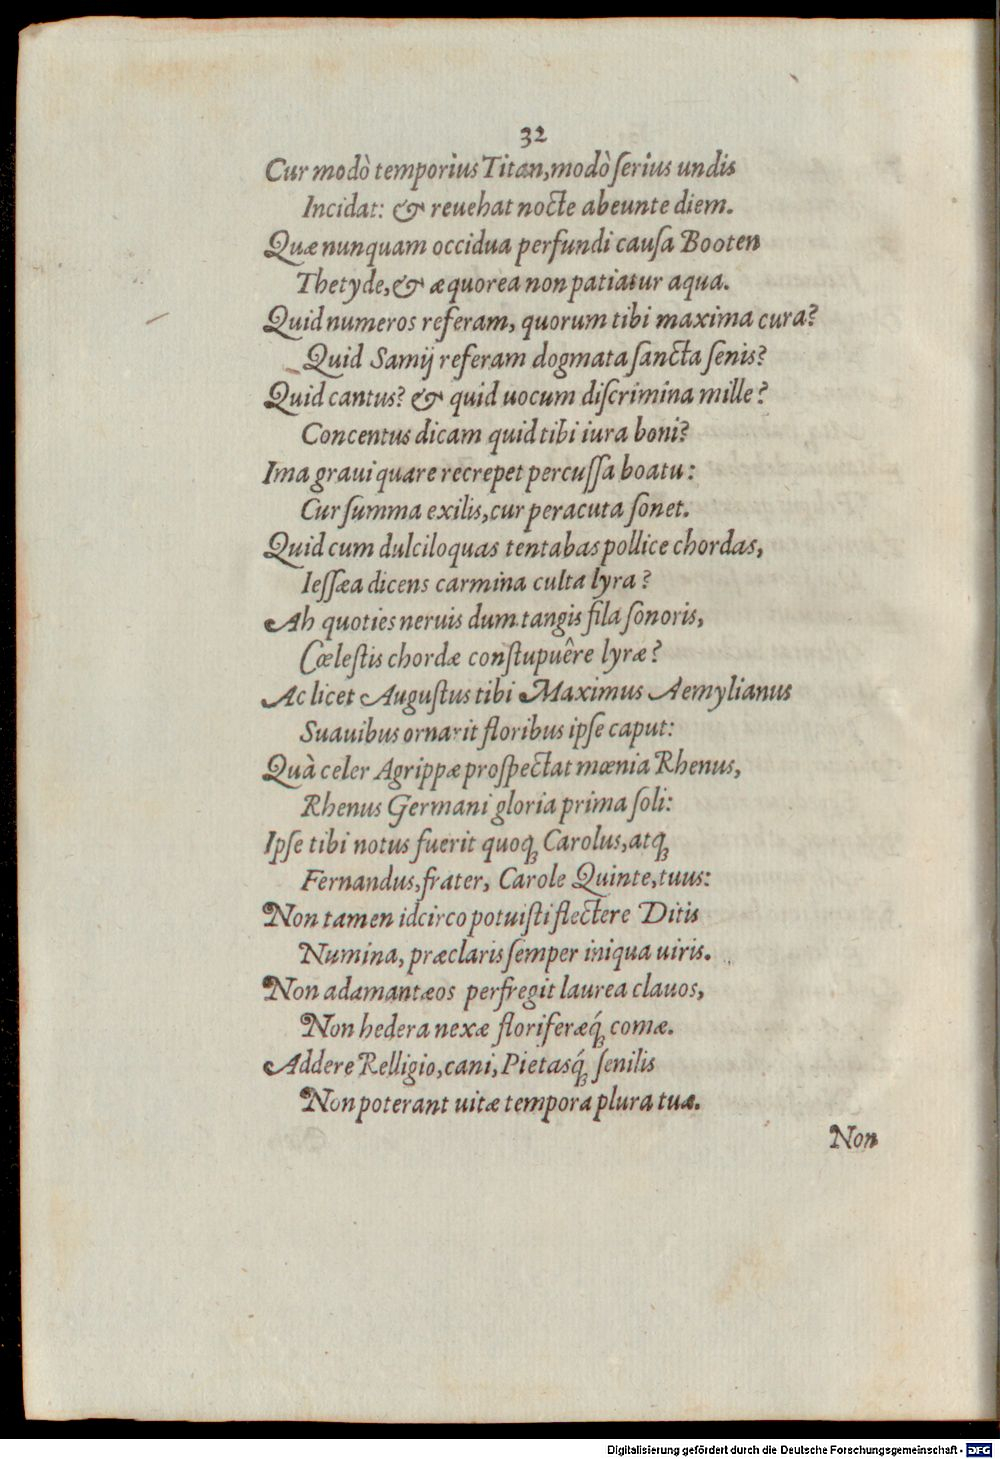 32
Cur modò temporius Titan, modò ſerius undis
Incidat: & reuehat nocte abeunte diem.
Quæ nunquam occidua perfundi cauſa Booten
Thetyde, & æquorea non patiatur aqua.
Quid numeros referam, quorum tibi maxima cura?
Quid Samij referam dogmata ſancta ſenis?
Quid cantus? & quid uocum diſcrimina mille?
Concentus dicam quid tibi iura boni?
Ima graui quare recrepet percuſſa boatu:
Cur ſumma exilis, cur peracuta ſonet.
Quid cum dulciloquas tentabas pollice chordas,
Ieſſæa dicens carmina culta lyra?
Ah quoties neruis dum tangis fila ſonoris,
Cœleſtis chordæ conſtupuêre lyræ?
Ac licet Auguſtus tibi Maximus Aemylianus
Suauibus ornarit floribus ipſe caput:
Quà celer Agrippæ proſpectat mœnia Rhenus,
Rhenus Germani gloria prima ſoli:
Ipſe tibi notus fuerit quoqꝫ Carolus, atqꝫ
Fernandus, frater, Carole Quinte, tuus:
Non tamen idcirco potuiſti flectere Ditis
Numina, præclaris ſemper iniqua uiris.
Non adamantæos perfregit laurea clauos,
Non hedera nexæ floriferæq́ꝫ comæ.
Addere Relligio, cani, Pietasq́ꝫ ſenilis
Non poterant uitæ tempora plura tuæ.
Non
Digitalisierung gefördert durch die Deutsche Forschungsgemeinschaft - DFG